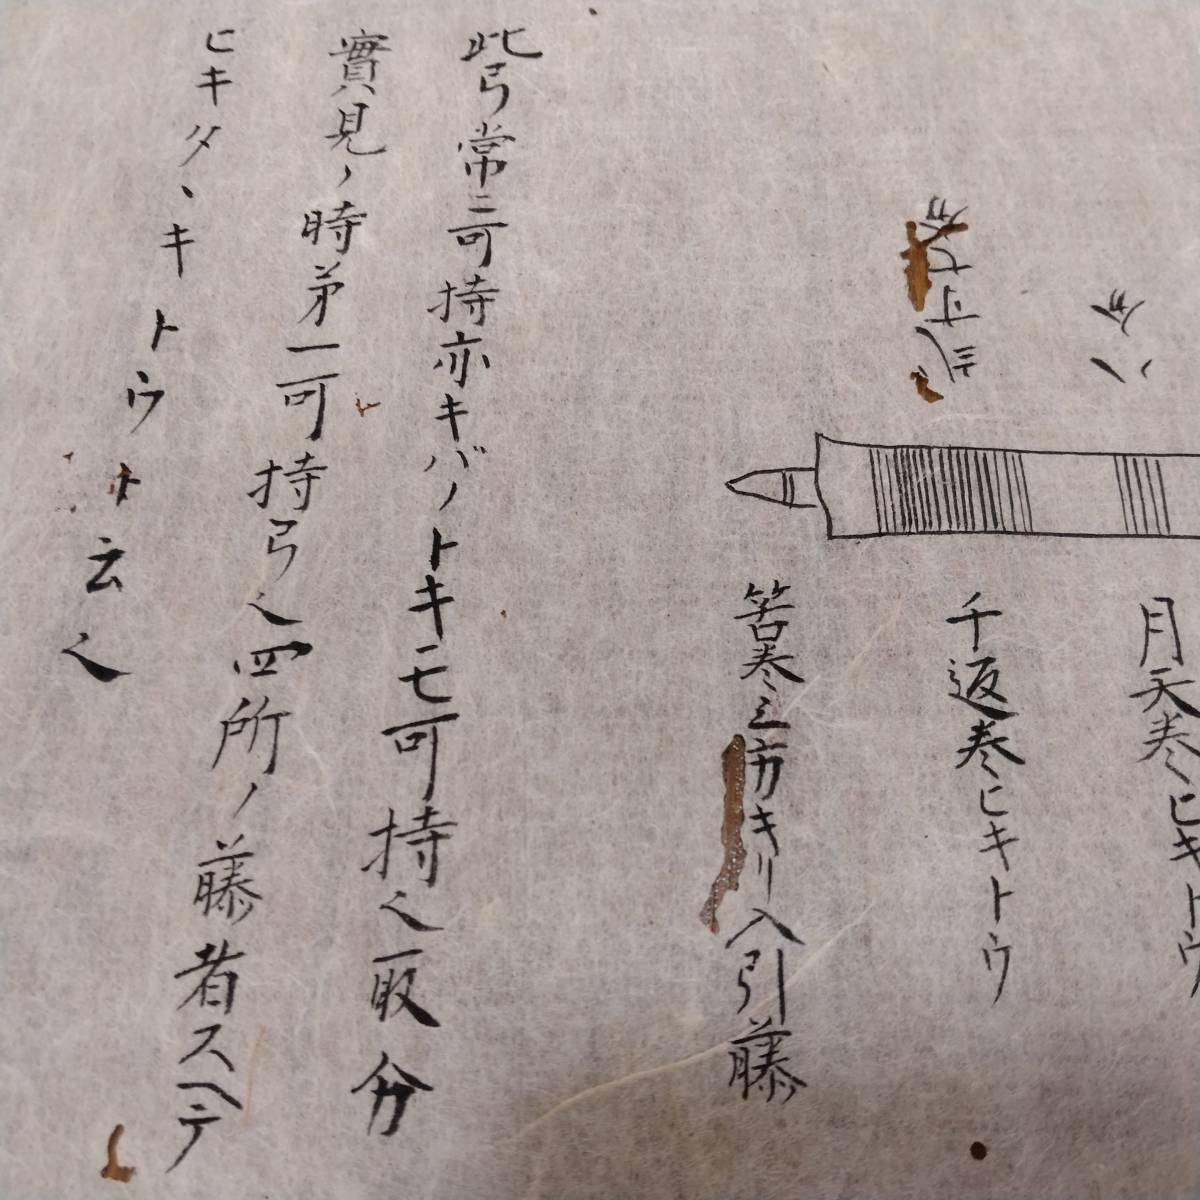 八分
弐寸七分
月天巻ヒキトウ
千返巻ヒキトウ
筈巻三方キリ入引藤
此弓常ニ可持亦キバノトキモ可持之取分
實見ノ時第一可持弓之四所ノ藤者スヘテ
ヒキタヽキトウト云之